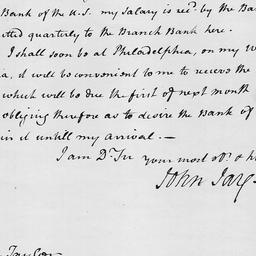 Bank of the U.S. my Salary is recd. by the Ba
tted quarterly to the Branch Bank here.
I shall soon be at Philadelphia, on my W
a, it will be convenient to me to receive the
which will be due the first of next month
obliging therefore as to desire the Bank of
in it untill my arrival. —
I am Dr. Sir your most obt. & h
John Jay
Taylor